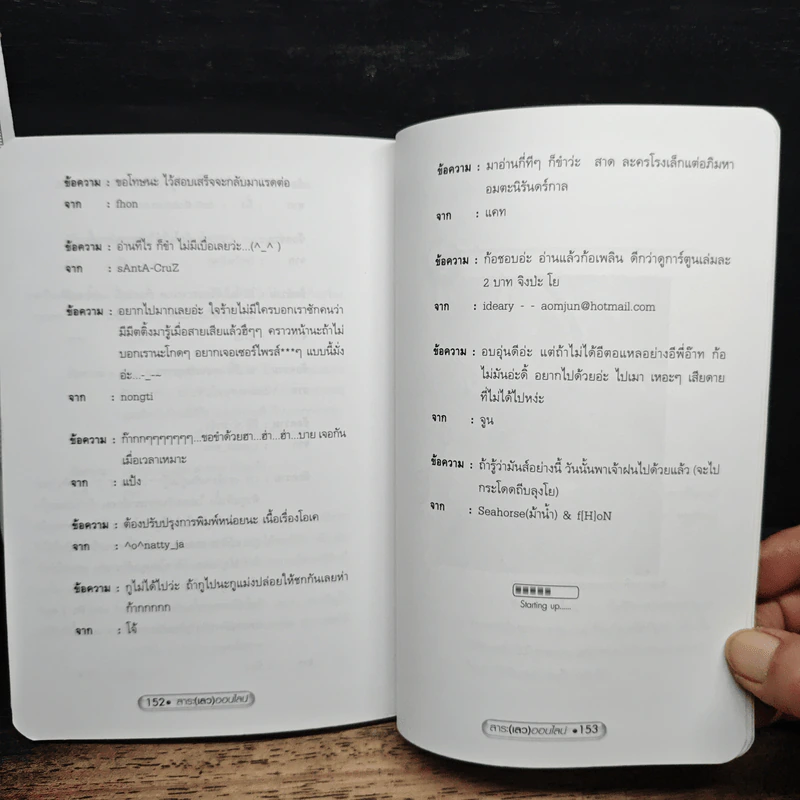 ข้อความ : ขอโทษนะ ไว้สอบเสร็จจะกลับมาแรดต่อ
จาก : fhon
ข้อความ : อ่านทีไร ก็ขำ ไม่มีเบื่อเลยว่ะ...(^_^ )
จาก : sAntA-CruZ
ข้อความ : อยากไปมากเลยอ่ะ ใจร้ายไม่มีใครบอกเราซักคนว่า
มีมีตติ้งมารู้เมื่อสายเสียแล้วฮืๆๆ คราวหน้านะถ้าไม่
บอกเรานะโกดๆ อยากเจอเซอร์ไพรส์***ๆ แบบนี้มั่ง
อ่ะ...-_-~
จาก : nongti
ข้อความ : ก๊ากกๆๆๆๆๆๆๆ...ขอขำด้วยฮา...ฮ่า...ฮ่า...บาย เจอกัน
เมื่อเวลาเหมาะ
จาก : แป้ง
ข้อความ : ต้องปรับปรุงการพิมพ์หน่อยนะ เนื้อเรื่องโอเค
จาก : ^o^natty_ja
ข้อความ : กูไม่ได้ไปว่ะ ถ้ากูไปนะกูแม่งปล่อยให้ชกกันเลยห่า
ก้ากกกกก
จาก : โจ้
152 • สาระ(เลว)ออนไลน์
ข้อความ : มาอ่านกี่ทีๆ ก็ขำว่ะ สาด ละครโรงเล็กแต่อภิมหา
อมตะนิรันดร์กาล
จาก : แคท
ข้อความ : ก้อชอบอ่ะ อ่านแล้วก้อเพลิน ดีกว่าดูการ์ตูนเล่มละ
2 บาท จิงป่ะ โย
จาก : ideary - - aomjun@hotmail.com
ข้อความ : อบอุ่นดีอ่ะ แต่ถ้าไม่ได้อีตอแหลอย่างอีพี่อ๊าท ก้อ
ไม่มันอ่ะดิ้ อยากไปด้วยอ่ะ ไปเมา เหอะๆ เสียดาย
ที่ไม่ได้ไปหง่ะ
จาก : จูน
ข้อความ : ถ้ารู้ว่ามันส์อย่างนี้ วันนั้นพาเจ้าฝนไปด้วยแล้ว (จะไป
กระโดดถีบลุงโย)
จาก : Seahorse(ม้าน้ำ) & f[H]oN
Starting up.....
สาระ(เลว)ออนไลน์ • 153